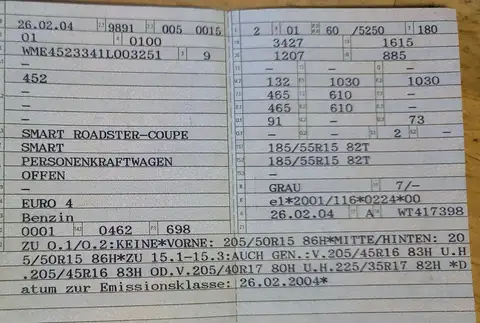 26.02.04 9891 005 0015
01 0100
WME4523341L003251 9
—
452
—
—
—
SMART ROADSTER-COUPE
SMART
PERSONENKRAFTWAGEN
OFFEN
—
EURO 4
Benzin
0001 0462 698
2 01 60 /5250 180
3427 1615
1207 885
— — —
132 1030 1030
465 610 —
465 610 —
91 — 73
— — 2 —
185/55R15 82T
185/55R15 82T
—
GRAU 7/—
e1*2001/116*0224*00
26.02.04 A WT417398
ZU O.1/O.2:KEINE*VORNE: 205/50R15 86H*MITTE/HINTEN: 20
5/50R15 86H*ZU 15.1-15.3:AUCH GEN.:V.205/45R16 83H U.H
.205/45R16 83H OD.V.205/40R17 80H U.H.225/35R17 82H *D
atum zur Emissionsklasse: 26.02.2004*